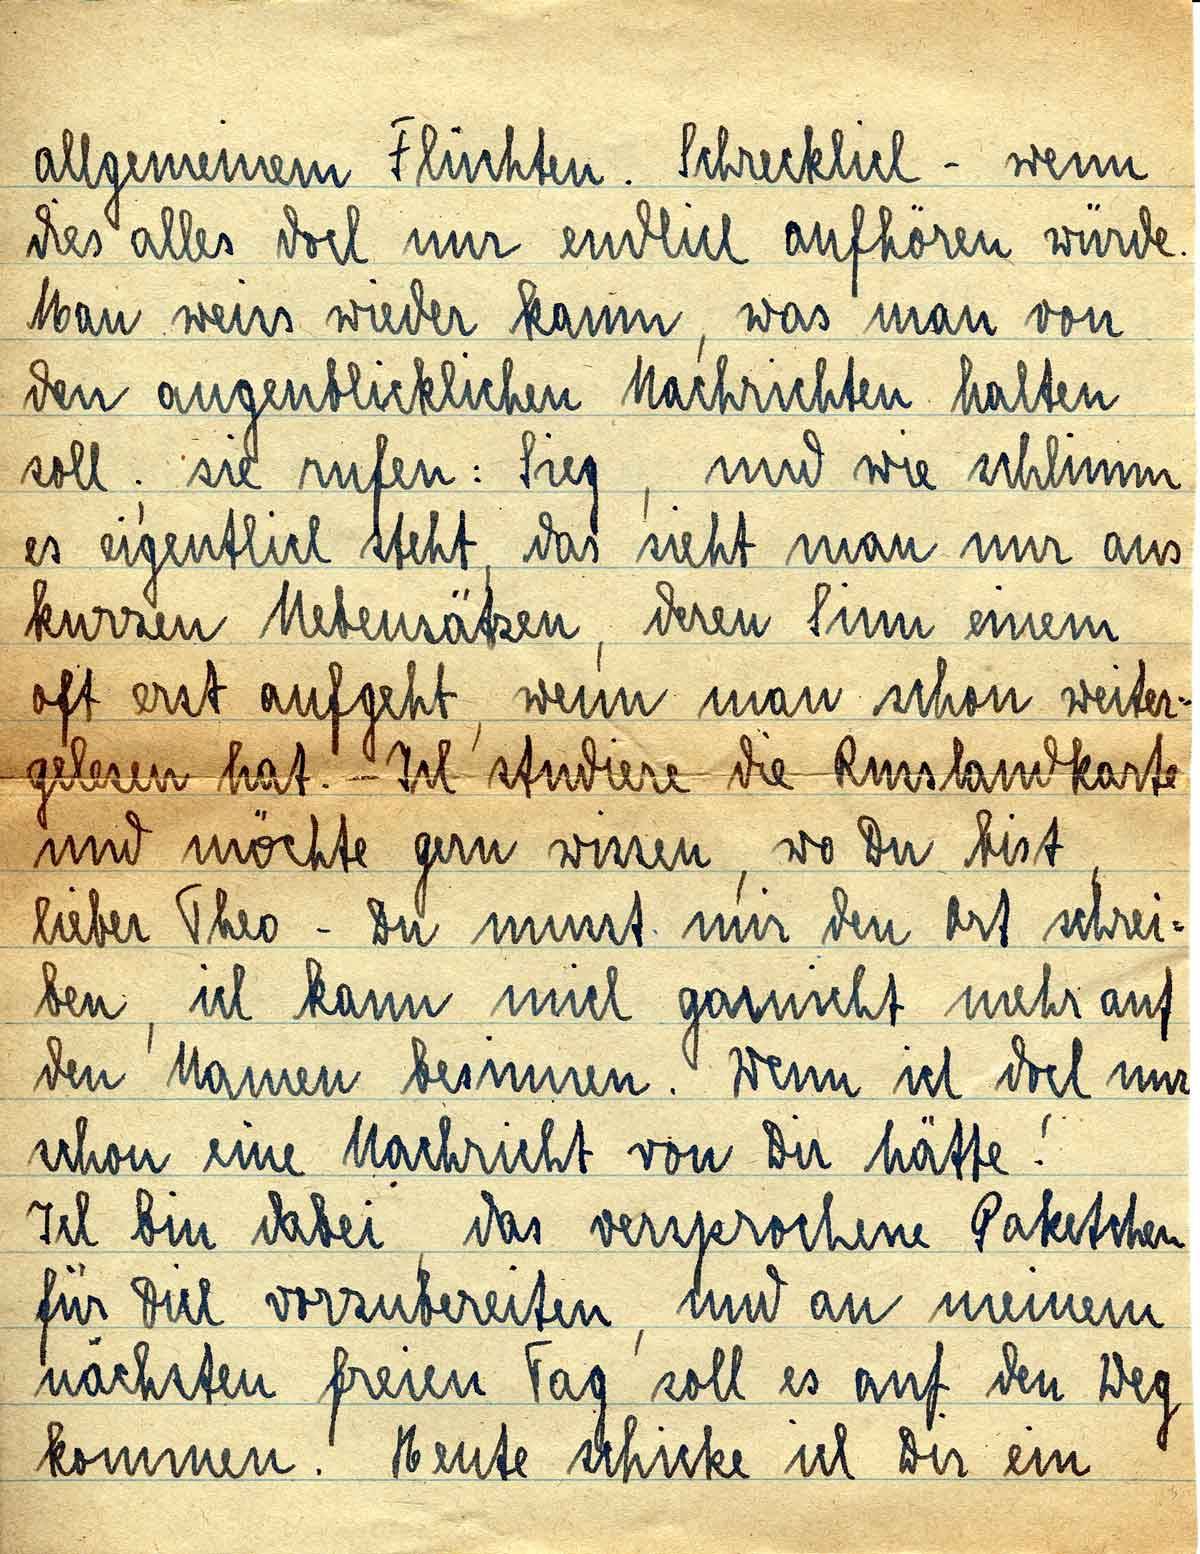 allgemeinem Flüchten. Schrecklich - wenn
dies alles doch nur endlich aufhören würde.
Man weiss wieder kaum, was man von
den augenblicklichen Nachrichten halten
soll; sie rufen: Sieg, und wie schlimm
es eigentlich steht, das sieht man nur aus
kurzen Nebensätzen, deren Sinn einem
oft erst aufgeht, wenn man schon weiter-
gelesen hat. - Ich studiere die Russlandkarte
und möchte gern wissen, wo Du bist,
lieber Theo - Du musst mir den Ort schrei-
ben, ich kann mich garnicht mehr auf
den Namen besinnen. Wenn ich doch nur
schon eine Nachricht von Dir hätte!
Ich bin dabei, das versprochene Paketchen
für Dich vorzubereiten, und an meinem
nächsten freien Tag soll es auf den Weg
kommen. Heute schicke ich Dir ein